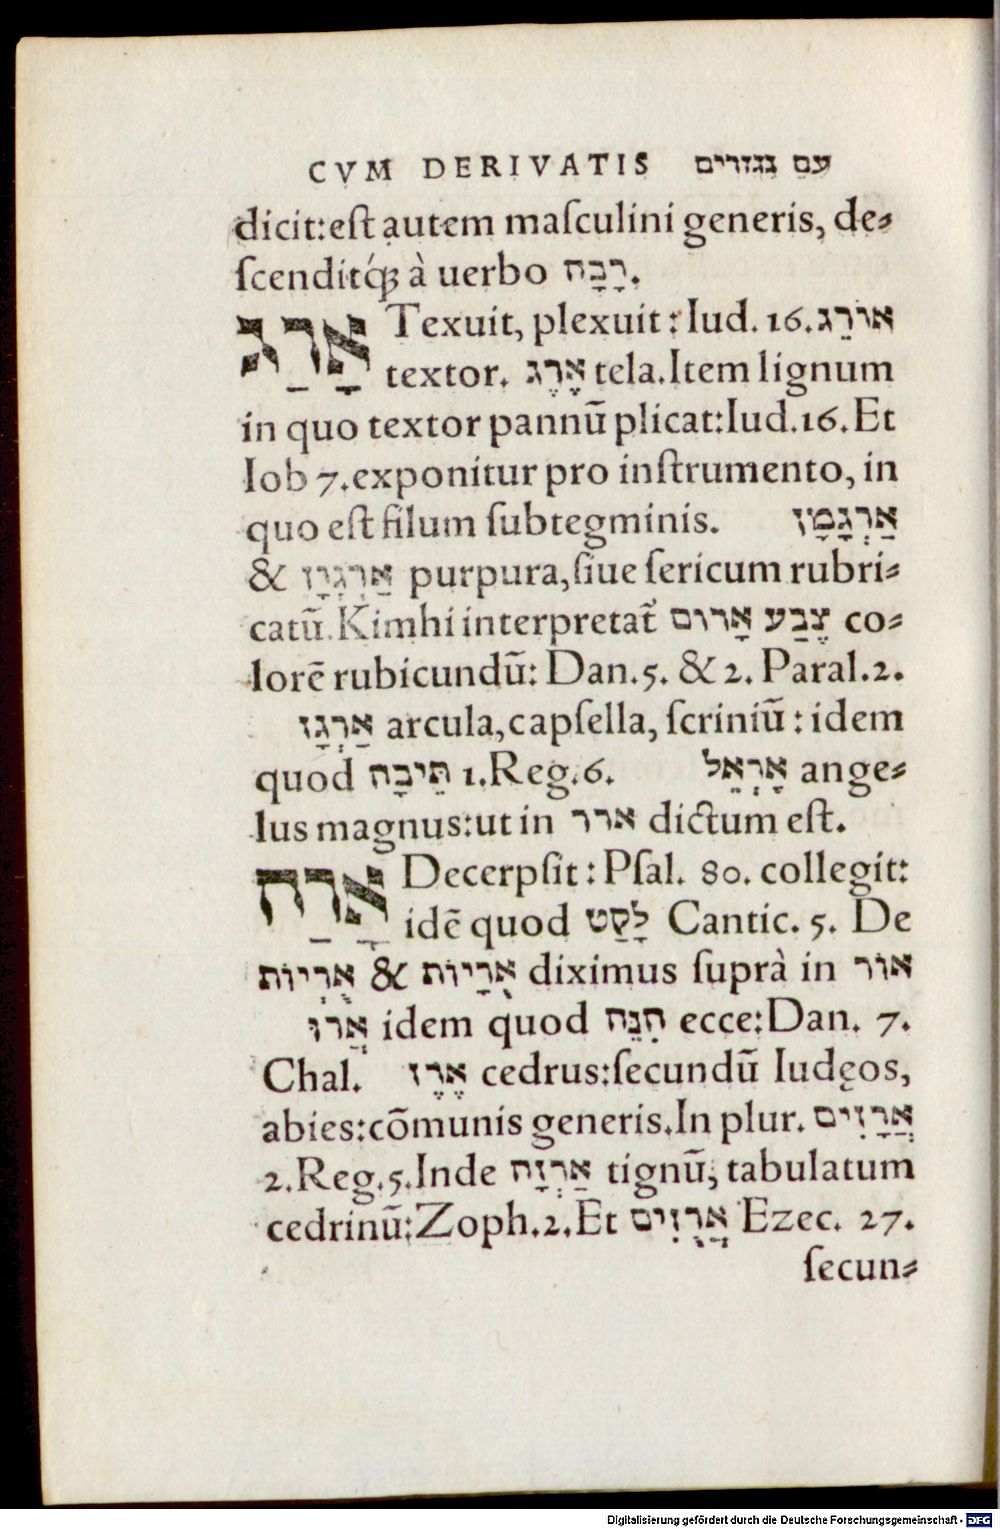 CVM DERIVATIS עם נגזרים
dicit:eſt autem maſculini generis, de⸗
ſcenditq́ꝫ à uerbo רָבָה.
אָרַג Texuit, plexuit: Iud. 16. אוֹרֵג
textor. אֶרֶג tela. Item lignum
in quo textor pannũ plicat: Iud. 16. Et
Iob 7. exponitur pro inſtrumento, in
quo eſt filum ſubtegminis. אַרְגָּמָן
& אַרְגְּוָן purpura, ſiue ſericum rubri⸗
catũ. Kimhi interpretat᷑ צֶבַע אָרוּם co⸗
lorẽ rubicundũ: Dan. 5. & 2. Paral. 2.
אַרְגָּז arcula, capſella, ſcriniũ: idem
quod תֵּיבָה 1. Reg. 6. אָרְאֵל ange⸗
lus magnus: ut in ארר dictum eſt.
אָרָה Decerpſit: Pſal. 80. collegit:
idẽ quod לָקַט Cantic. 5. De
אֻרְיוֹת & אֻרָיוֹת diximus ſuprà in אוּר
אֲרוּ idem quod הִנֵּה ecce: Dan. 7.
Chal. אֶרֶז cedrus: ſecundũ Iudęos,
abies: cõmunis generis. In plur. אֲרָזִים
2. Reg. 5. Inde אַרְזָה tignũ, tabulatum
cedrinũ: Zoph. 2. Et אֲרֻזִים Ezec. 27.
ſecun⸗
Digitalisierung gefördert durch die Deutsche Forschungsgemeinschaft - DFG